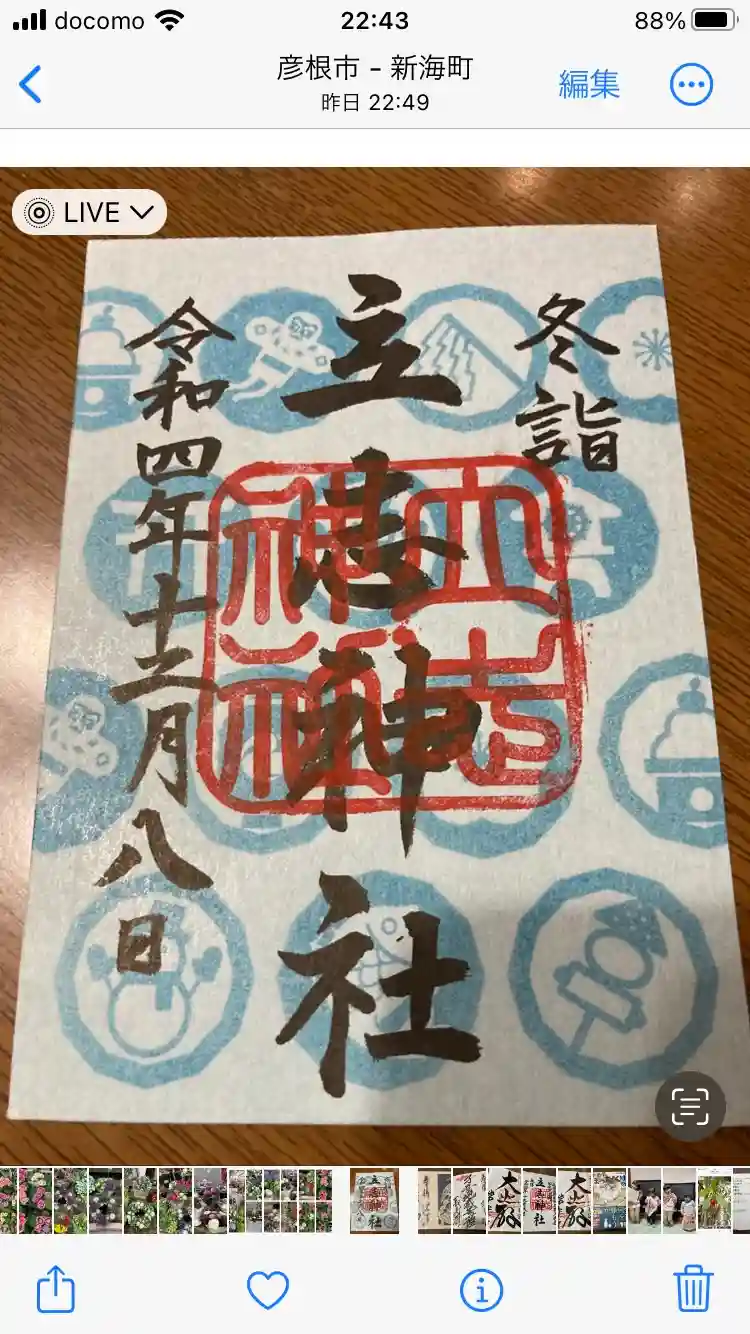 docomo 22:43 88%
彦根市 – 新海町
昨日 22:49
編集
LIVE
冬詣
立志神社
令和四年十二月八日